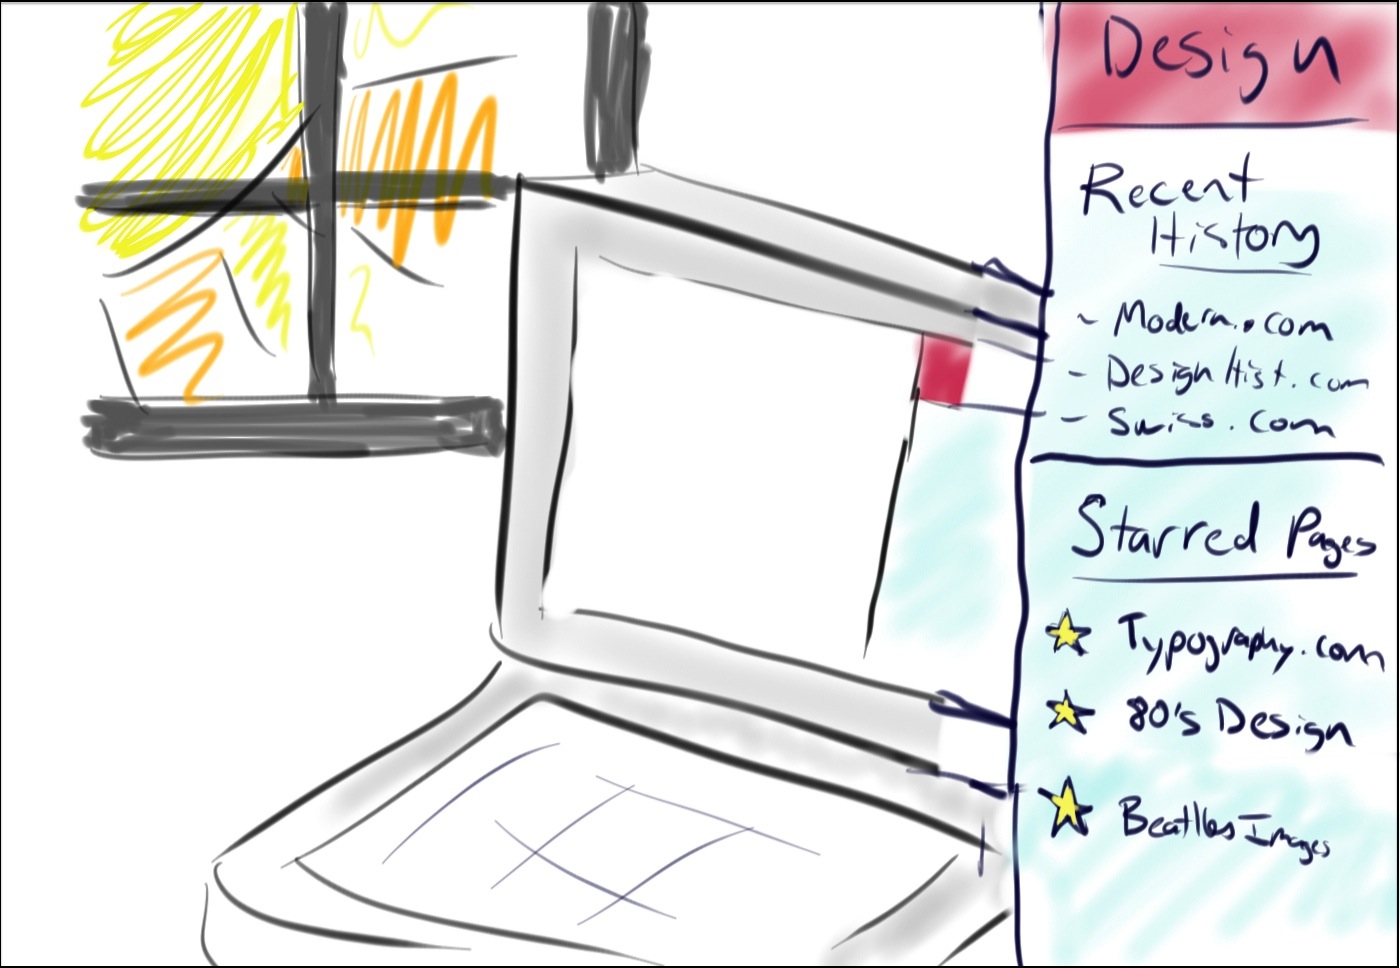 Design
Recent
History
~ Modern..com
- DesignHist.com
- Swiss.com
Starred Pages
Typography.com
80's Design
Beatles Images